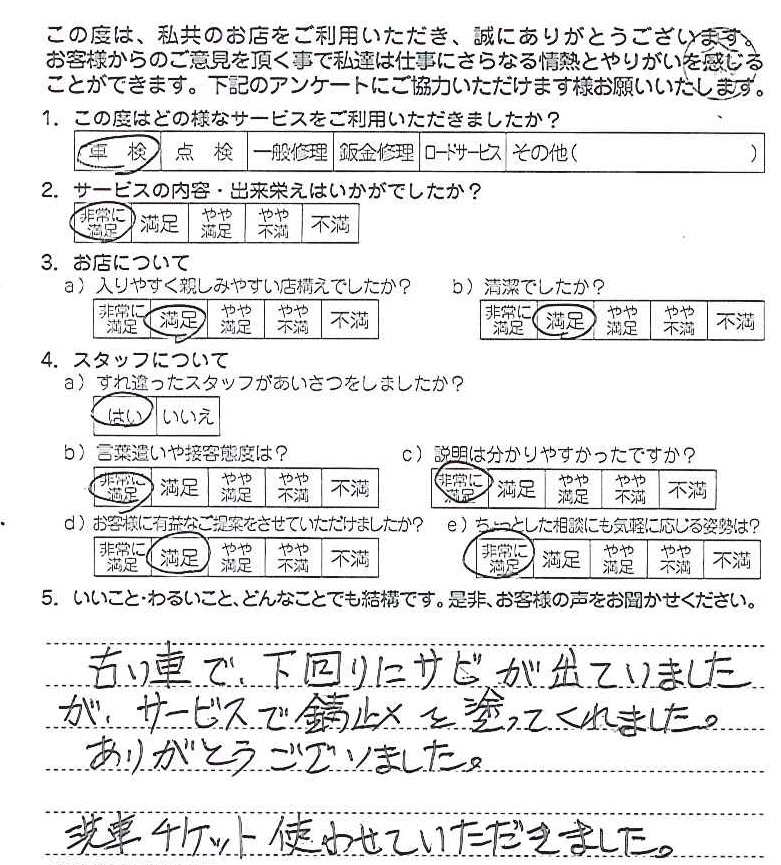 この度は、私共のお店をご利用いただき、誠にありがとうございます。
お客様からのご意見を頂く事で私達は仕事にさらなる情熱とやりがいを感じる
ことができます。下記のアンケートにご協力いただけます様お願いいたします。
1. この度はどの様なサービスをご利用いただきましたか？
車 検 点 検 一般修理 鈑金修理 ロードサービス その他( )
2. サービスの内容・出来栄えはいかがでしたか？
非常に満足 満足 やや満足 やや不満 不満
3. お店について
a）入りやすく親しみやすい店構えでしたか？ b）清潔でしたか？
非常に満足 満足 やや満足 やや不満 不満 非常に満足 満足 やや満足 やや不満 不満
4. スタッフについて
a）すれ違ったスタッフがあいさつをしましたか？
はい いいえ
b）言葉遣いや接客態度は？ c）説明は分かりやすかったですか？
非常に満足 満足 やや満足 やや不満 不満 非常に満足 満足 やや満足 やや不満 不満
d）お客様に有益なご提案をさせていただけましたか？ e）ちょっとした相談にも気軽に応じる姿勢は？
非常に満足 満足 やや満足 やや不満 不満 非常に満足 満足 やや満足 やや不満 不満
5. いいこと・わるいこと、どんなことでも結構です。是非、お客様の声をお聞かせください。
古い車で、下回りにサビが出ていました
が、サービスで錆止メを塗ってくれました。
ありがとうございました。
洗車チケット使わせていただきました。